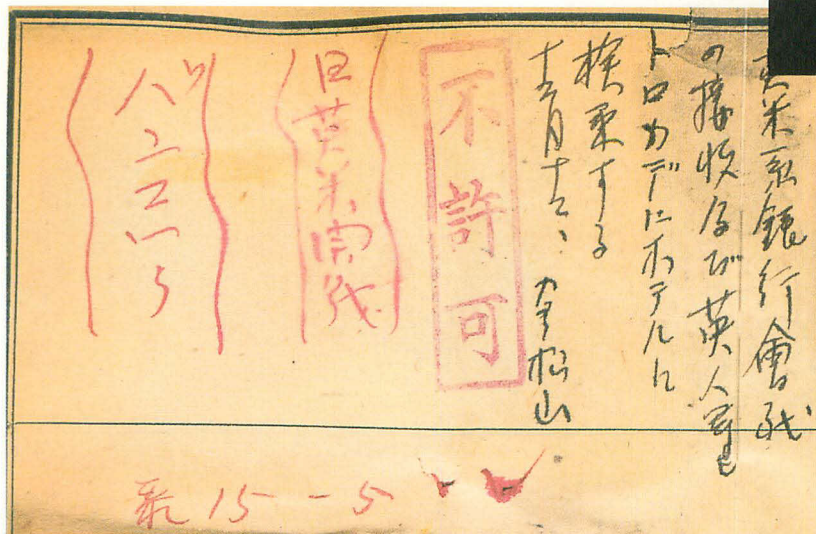 英米系銀行會社
の接収及び英人等を
トロカデロホテルに
検束する
十二月十二、 松山
不許可
日英米開戦
バンコツク
15-5